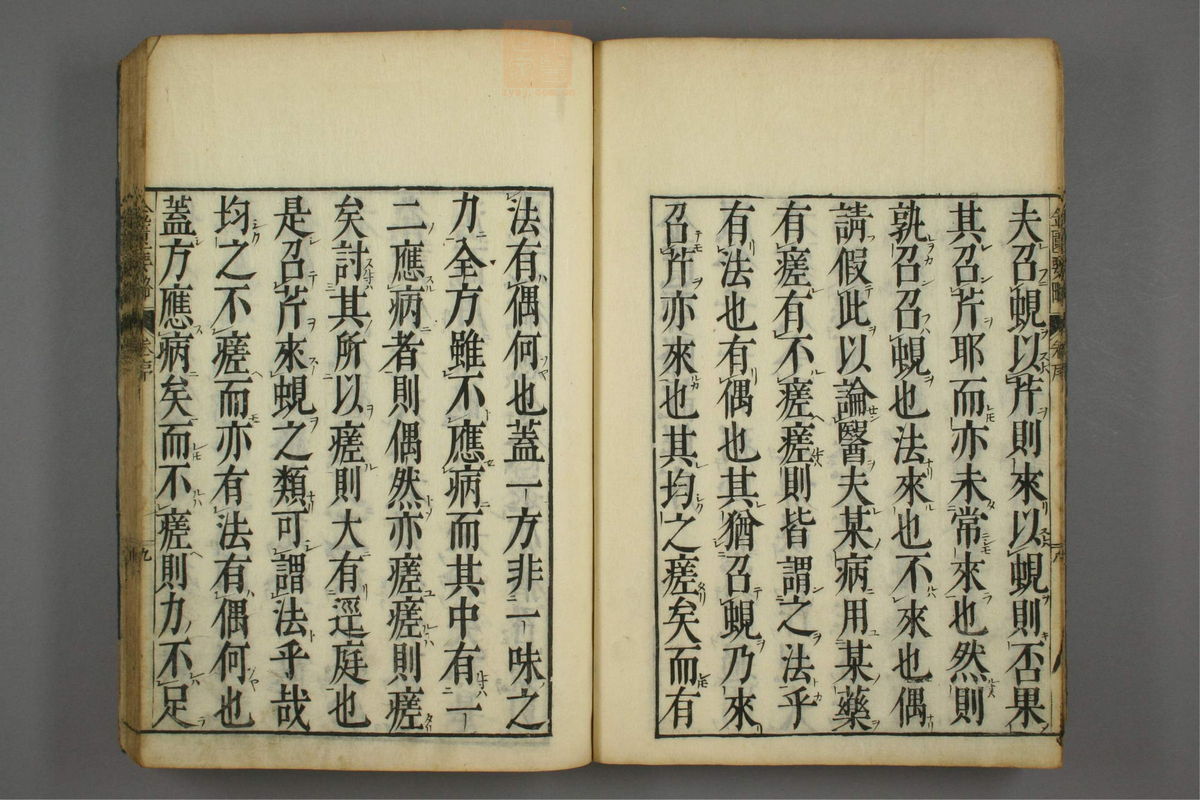 夫召蜆以芹則來以蜆則否果
其召芹耶而亦未常來也然則
孰召召蜆也法來也不來也偶
請假此以論醫夫某病用某藥
有瘥有不瘥瘥則皆謂之法乎
有法也有偶也其猶召蜆乃來
召芹亦來也其均之瘥矣而有
法有偶何也蓋一方非一味之
力全方雖不應病而其中有一
二應病者則偶然亦瘥瘥則瘥
矣討其所以瘥則大有逕庭也
是召芹來蜆之類可謂法乎哉
均之不瘥而亦有法有偶何也
蓋方應病矣而不瘥則力不足
九